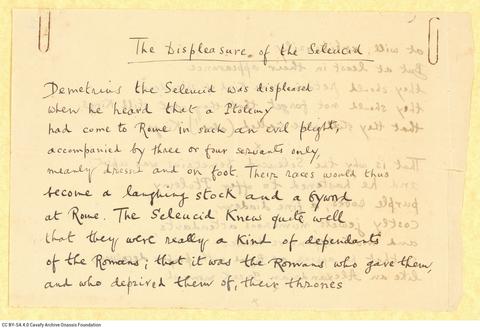 The Displeasure of the Seleucid
Demetrius the Seleucid was displeased
when he heard that a Ptolemy
had come to Rome in such an evil plight;
accompanied by three or four servants only,
meanly dressed and on foot. Their races would thus
become a laughing stock and a byword
at Rome. The Seleucid knew quite well
that they were really a kind of dependants
of the Romans; that it was the Romans who gave them,
and who deprived them of, their thrones
CC BY-SA 4.0 Cavafy Archive Onassis Foundation